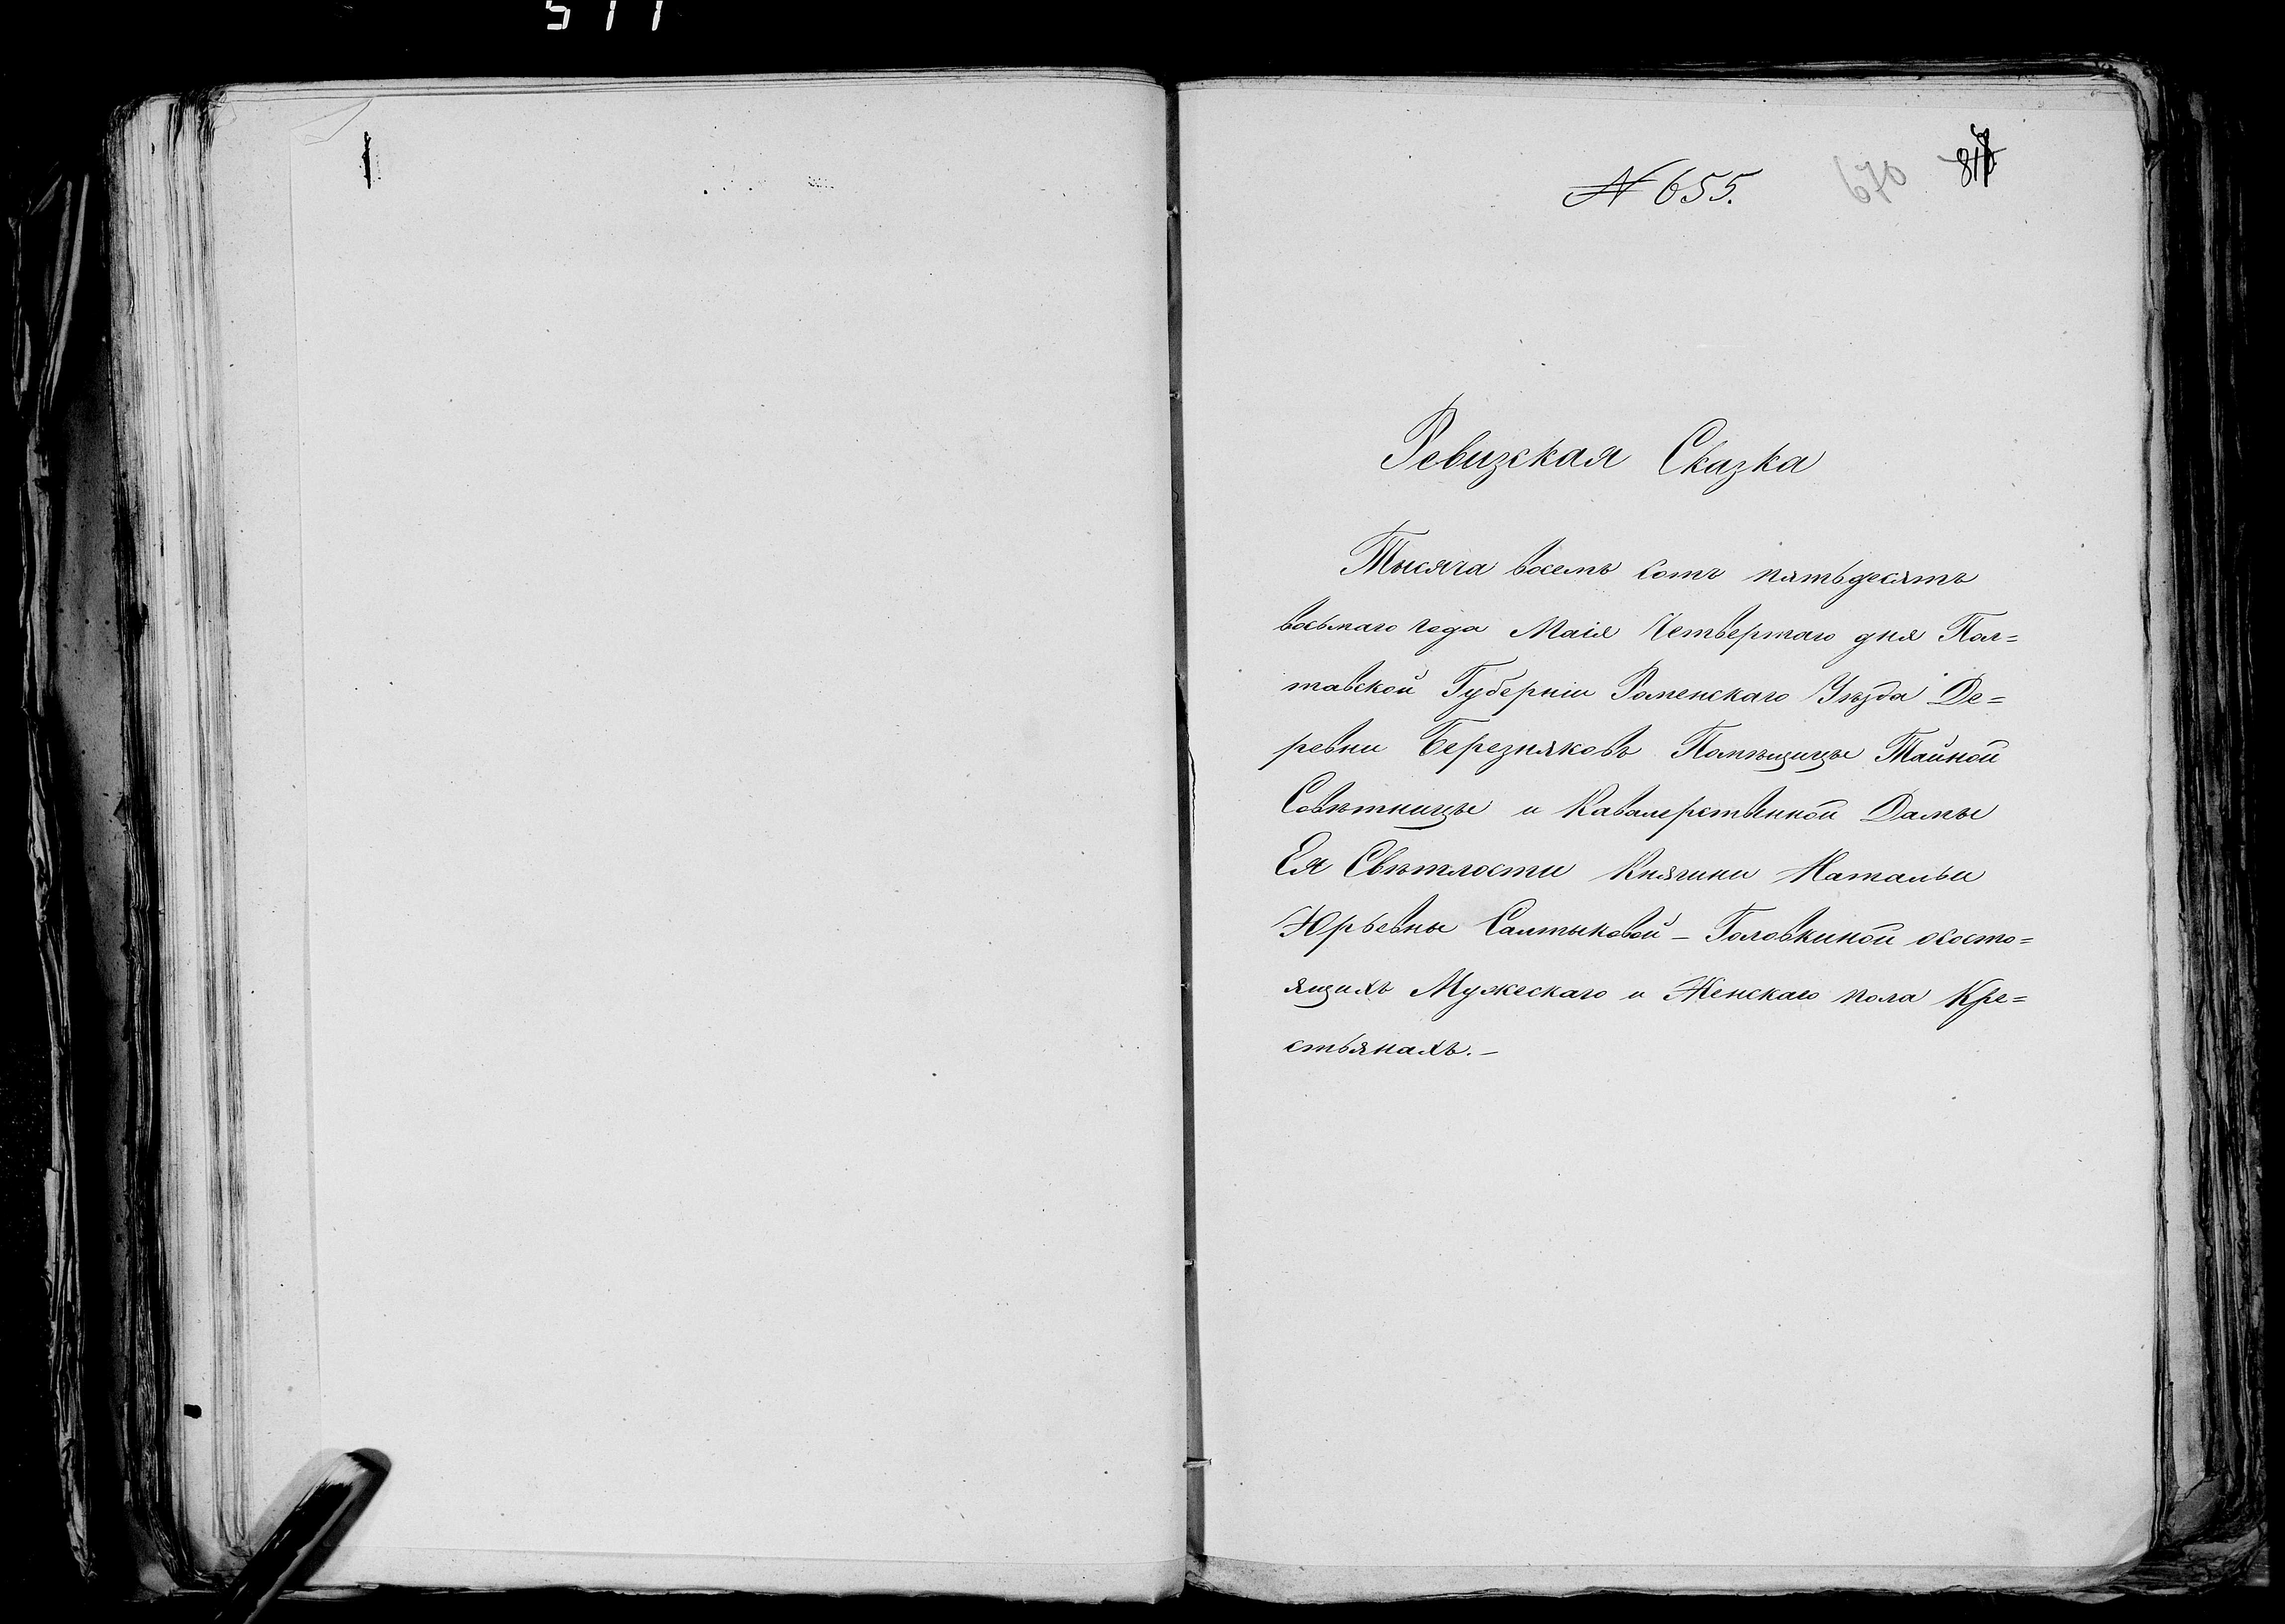 511
№ 655.
670
Ревизская Сказка
Тысяча восемь сотъ пятьдесятъ
восьмаго года Маія Четвертаго дня Пол=
тавской Губерніи Роменскаго Уѣзда Де=
ревни Березняковъ Помѣщицы Тайной
Совѣтницы и Кавалерственной Дамы
Ея Свѣтлости Княгини Натальи
Юрьевны Салтыковой - Головкиной ососто=
ящихъ Мужескаго и Женскаго пола Кре=
стьянахъ. -